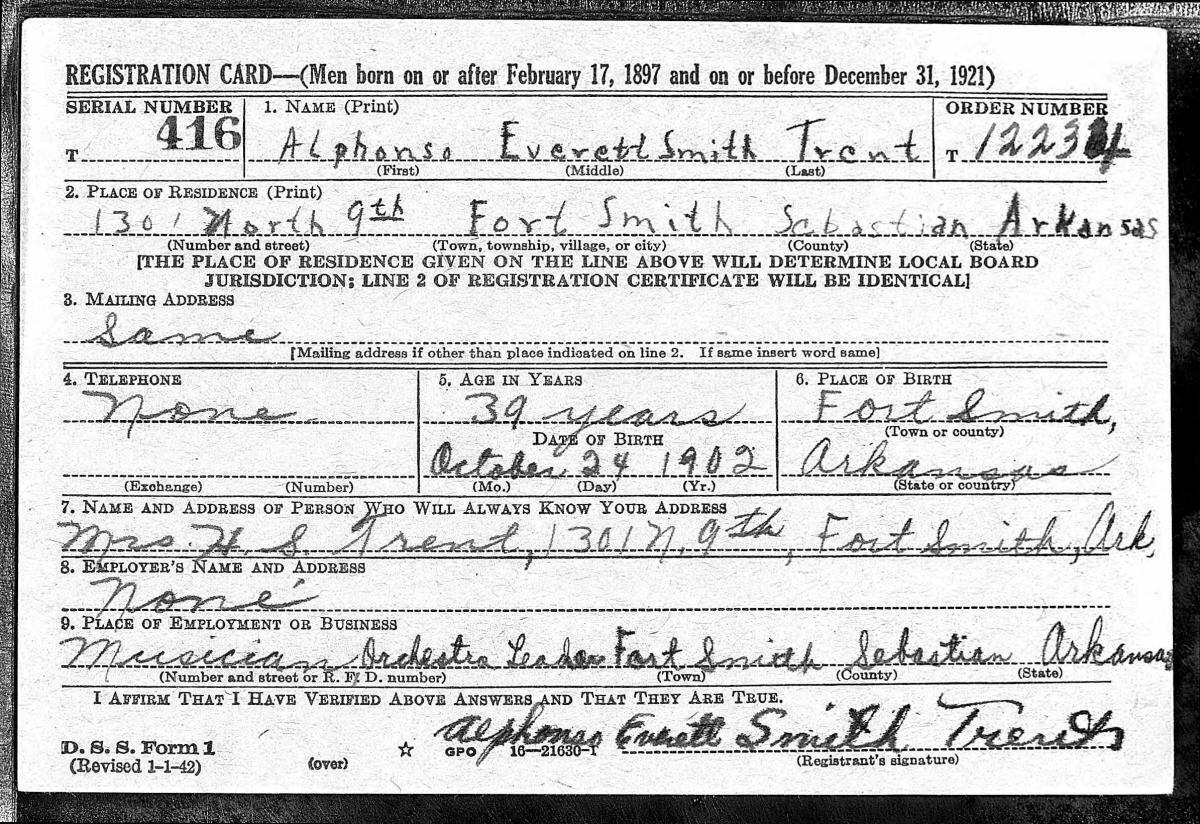 REGISTRATION CARD—(Men born on or after February 17, 1897 and on or before December 31, 1921)
SERIAL NUMBER 1. NAME (Print) ORDER NUMBER
T 416 Alphonso Everett Smith Trent T 12234
(First) (Middle) (Last)
2. PLACE OF RESIDENCE (Print)
1301 North 9th Fort Smith Sebastian Arkansas
(Number and street) (Town, township, village, or city) (County) (State)
[THE PLACE OF RESIDENCE GIVEN ON THE LINE ABOVE WILL DETERMINE LOCAL BOARD
JURISDICTION; LINE 2 OF REGISTRATION CERTIFICATE WILL BE IDENTICAL]
3. MAILING ADDRESS
Same
[Mailing address if other than place indicated on line 2. If same insert word same]
4. TELEPHONE 5. AGE IN YEARS 6. PLACE OF BIRTH
None 39 years Fort Smith,
DATE OF BIRTH (Town or county)
October 24 1902 Arkansas
(Exchange) (Number) (Mo.) (Day) (Yr.) (State or country)
7. NAME AND ADDRESS OF PERSON WHO WILL ALWAYS KNOW YOUR ADDRESS
Mrs. H. S. Trent, 1301 N. 9th, Fort Smith, Ark.
8. EMPLOYER'S NAME AND ADDRESS
None
9. PLACE OF EMPLOYMENT OR BUSINESS
Musician Orchestra Leader Fort Smith Sebastian Arkansas
(Number and street or R. F. D. number) (Town) (County) (State)
I AFFIRM THAT I HAVE VERIFIED ABOVE ANSWERS AND THAT THEY ARE TRUE.
Alphonso Everett Smith Trent
D. S. S. Form 1 ☆ GPO 16—21630-1
(Revised 1-1-42) (over) (Registrant's signature)